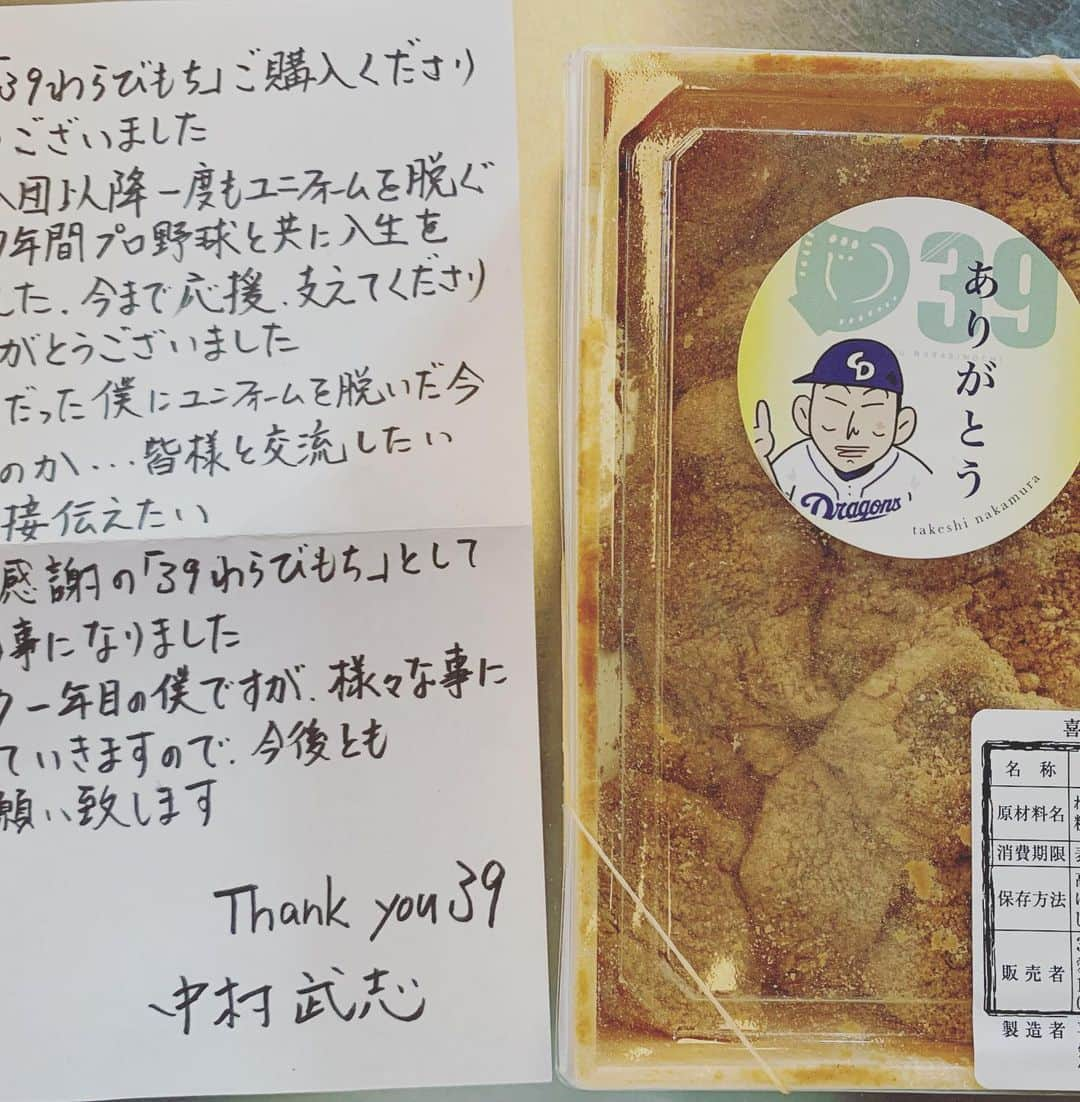 「39わらびもち」ご購入くださり
ございました
団以降一度もユニフォームを脱ぐ
年間プロ野球と共に人生を
した、今まで応援、支えてくださり
がとうございました
だった僕にユニフォームを脱いだ今
のか…皆様と交流したい
接伝えたい
感謝の「39わらびもち」として
事になりました
一年目の僕ですが、様々な事に
ていきますので、今後とも
願い致します
Thank you 39
中村武志
39
ありがとう
CD
Dragons
takeshi nakamura
喜
名称
原材料名
消費期限
保存方法
販売者
製造者